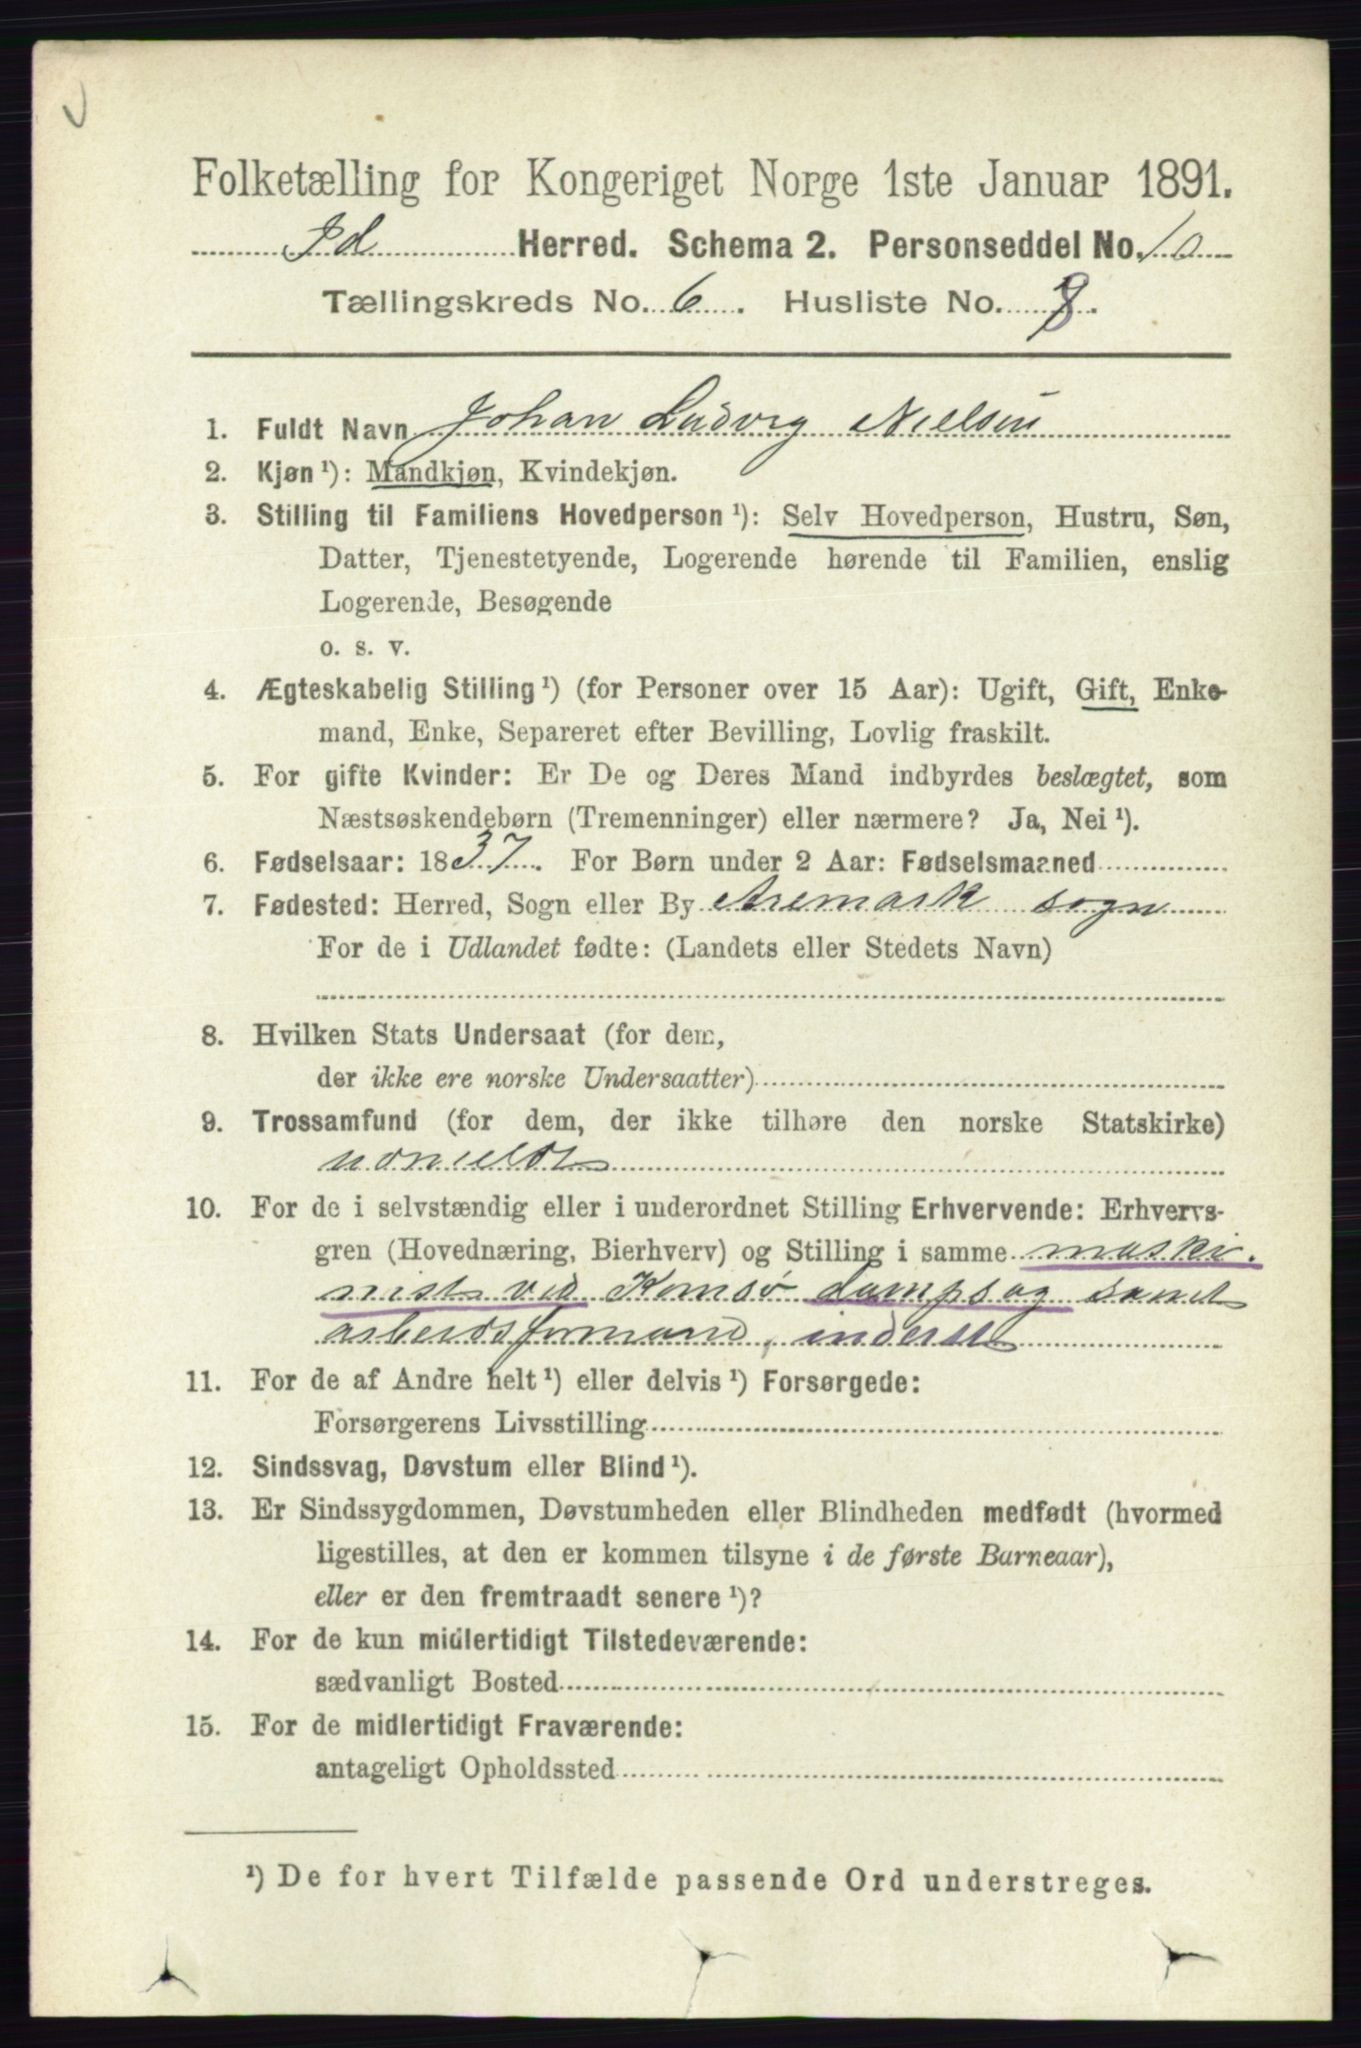 Folketælling for Kongeriget Norge 1ste Januar 1891.
Id Herred. Schema 2. Personseddel No. 10
Tællingskreds No. 6. Husliste No. 8.
1. Fuldt Navn Johan Ludvig Nielsen
2. Kjøn ¹): Mandkjøn, Kvindekjøn.
3. Stilling til Familiens Hovedperson ¹): Selv Hovedperson, Hustru, Søn,
Datter, Tjenestetyende, Logerende hørende til Familien, enslig
Logerende, Besøgende
o. s. v.
4. Ægteskabelig Stilling ¹) (for Personer over 15 Aar): Ugift, Gift, Enke-
mand, Enke, Separeret efter Bevilling, Lovlig fraskilt.
5. For gifte Kvinder: Er De og Deres Mand indbyrdes beslægtet, som
Næstsøskendebørn (Tremenninger) eller nærmere? Ja, Nei ¹).
6. Fødselsaar: 1837. For Børn under 2 Aar: Fødselsmaaned
7. Fødested: Herred, Sogn eller By Aremark sogn
For de i Udlandet fødte: (Landets eller Stedets Navn)
8. Hvilken Stats Undersaat (for dem,
der ikke ere norske Undersaatter)
9. Trossamfund (for dem, der ikke tilhøre den norske Statskirke)
10. For de i selvstændig eller i underordnet Stilling Erhvervende: Erhvervs-
gren (Hovednæring, Bierhverv) og Stilling i samme maski
nist ved Komsø dampsag samt
arbeidsformand, inderst
11. For de af Andre helt ¹) eller delvis ¹) Forsørgede:
Forsørgerens Livsstilling
12. Sindssvag, Døvstum eller Blind ¹).
13. Er Sindssygdommen, Døvstumheden eller Blindheden medfødt (hvormed
ligestilles, at den er kommen tilsyne i de første Barneaar),
eller er den fremtraadt senere ¹)?
14. For de kun midlertidigt Tilstedeværende:
sædvanligt Bosted
15. For de midlertidigt Fraværende:
antageligt Opholdssted
¹) De for hvert Tilfælde passende Ord understreges.